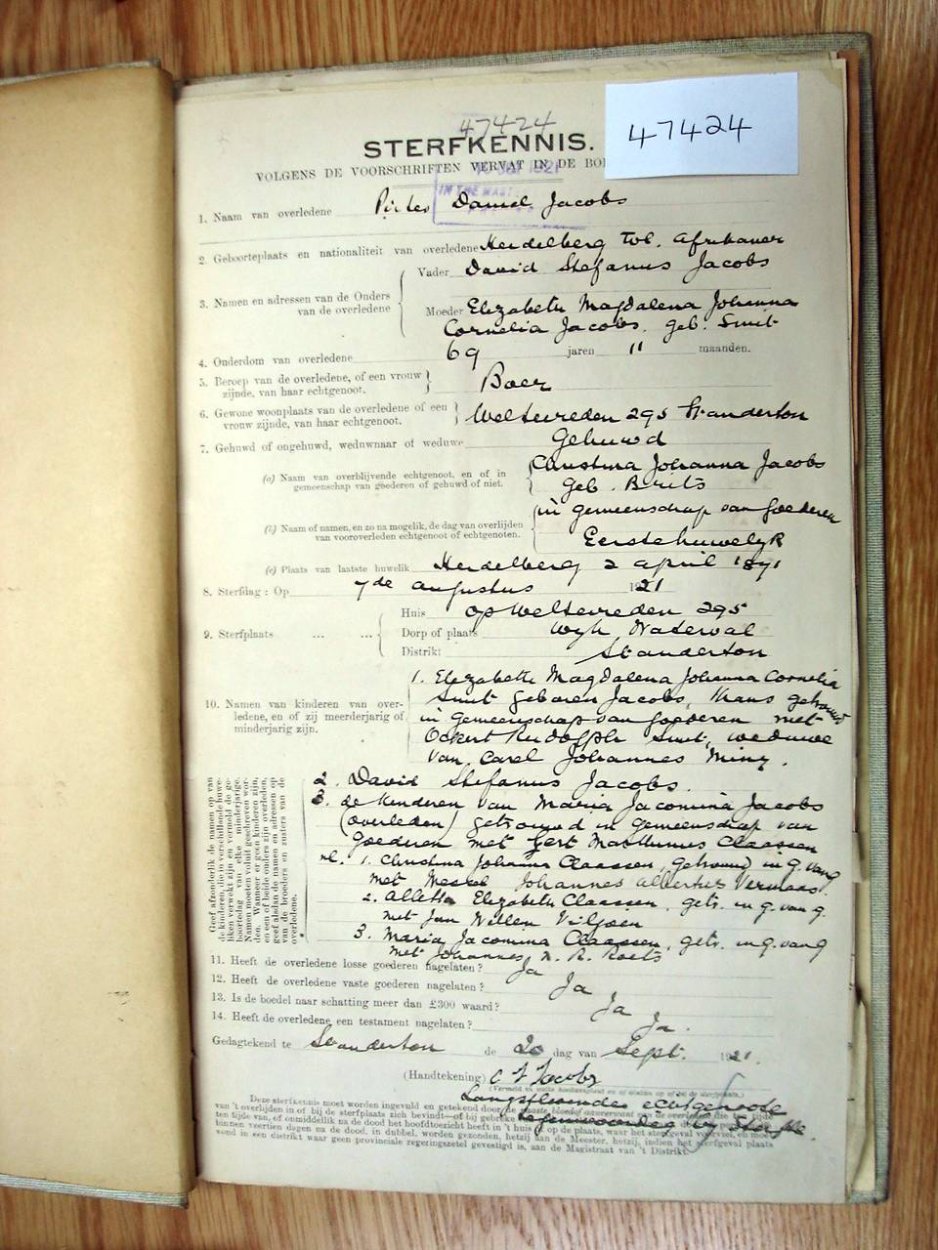 47424
47424
STERFKENNIS.
VOLGENS DE VOORSCHRIFTEN VERVAT IN DE
IN THE
1. Naam van overledene Pieter Daniel Jacobs
2. Geboorteplaats en nationaliteit van overledene Heidelberg Tvl. Afrikaner
3. Namen en adressen van de Ouders van de overledene
Vader David Stefanus Jacobs
Moeder Elizabeth Magdalena Johanna
Cornelia Jacobs. geb. Smit
4. Onderdom van overledene 69 jaren 11 maanden.
5. Beroep van de overledene, of een vrouw
zijnde, van haar echtgenoot. Boer
6. Gewone woonplaats van de overledene of een
vrouw zijnde, van haar echtgenoot. Weltevreden 295 Standerton
7. Gehuwd of ongehuwd, weduwnaar of weduwe Gehuwd
(a) Naam van overblijvende echtgenoot, en of in
gemeenschap van goederen of gehuwd of niet.
Christina Johanna Jacobs
geb. Brits
in gemeenschap van goederen
(b) Naam of namen, en zo na mogelik, de dag van overlijden
van vooroverleden echtgenoot of echtgenoten.
Eerste huwelyk
(c) Plaats van laatste huwelik Heidelberg 2 April 1871
8. Sterfdag: Op 7de Augustus 1921
9. Sterfplaats ... ...
Huis op Weltevreden 295
Dorp of plaats Wyk Waterval
Distrikt Standerton
10. Namen van kinderen van over-
ledene, en of zij meerderjarig of
minderjarig zijn.
1. Elizabeth Magdalena Johanna Cornelia
Smit geboren Jacobs, thans getrouwd
in gemeenschap van goederen met
Ockert Rudolph Smit, weduwe
van Carel Johannes
Geef afzonderlik de namen op van
de kinderen, die in verschillende huwe-
liken verwekt zijn en vermeld de ge-
boortedag van elke minderjarige.
Namen moeten voluit geschreven wor-
den. Wanneer er geen kinderen zijn,
en een of beide ouders zijn overleden,
geef alsdan de namen en adressen op
van de broeders en zusters van de
overledene.
2. David Stefanus Jacobs.
3. de kinderen van Maria Jacomina Jacobs
(overleden) getrouwd in gemeenschap van
goederen met Gert Marthinus Claassen
nl. 1. Christina Johanna Claassen, getrouwd in g. van g.
met Johannes Albertus Vermaas.
2. Aletta Elizabeth Claassen, getr. in g. van g.
met Jan Willem Viljoen
3. Maria Jacomina Claassen, getr. in g. van g
met Johannes
11. Heeft de overledene losse goederen nagelaten? Ja
12. Heeft de overledene vaste goederen nagelaten? Ja
13. Is de boedel naar schatting meer dan £300 waard? Ja
14. Heeft de overledene een testament nagelaten? Ja.
Gedagtekend te Standerton de 20 dag van Sept. 1921.
(Handtekening) C J Jacobs
Langstlevende echtgenote
tegenwoordig by sterfte.
Deze sterfkennis moet worden ingevuld en getekend door de naaste
van 't overlijden in of bij de sterfplaats zich bevindt—of bij gebreke
ten tijde van, of onmiddelik na de dood het hoofdtoezicht heeft in 't huis of op de plaats, waar het sterfgeval voorviel, en moet
binnen veertien dagen na de dood, in dubbel, worden gezonden, hetzij aan de Meester, hetzij, indien het sterfgeval plaats
vond in een distrikt waar geen provinciale regeringszetel gevestigd is, aan de Magistraat van 't Distrikt.